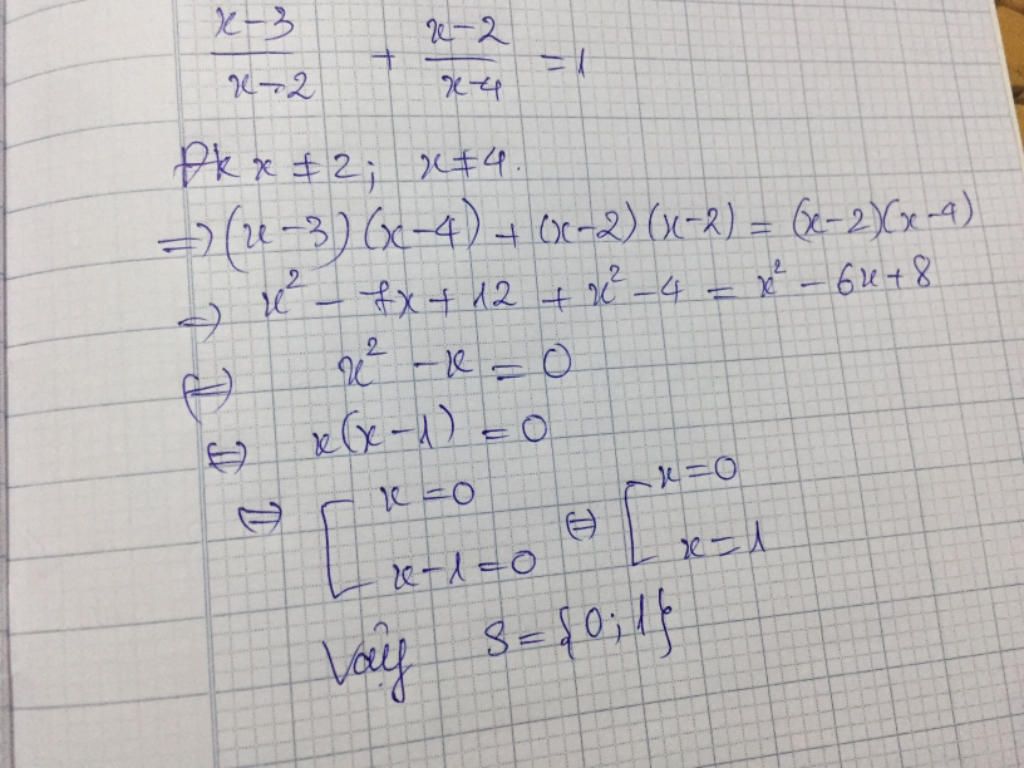 x-3/x-2 + x-2/x-4 = 1
Đk x ≠ 2; x ≠ 4.
=> (x-3)(x-4) + (x-2)(x-2) = (x-2)(x-4)
=> x² - 7x + 12 + x² - 4 = x² - 6x + 8
<=> x² - x = 0
<=> x(x-1) = 0
<=> [ x = 0 <=> [ x = 0
x - 1 = 0 x = 1
Vậy S = {0; 1}